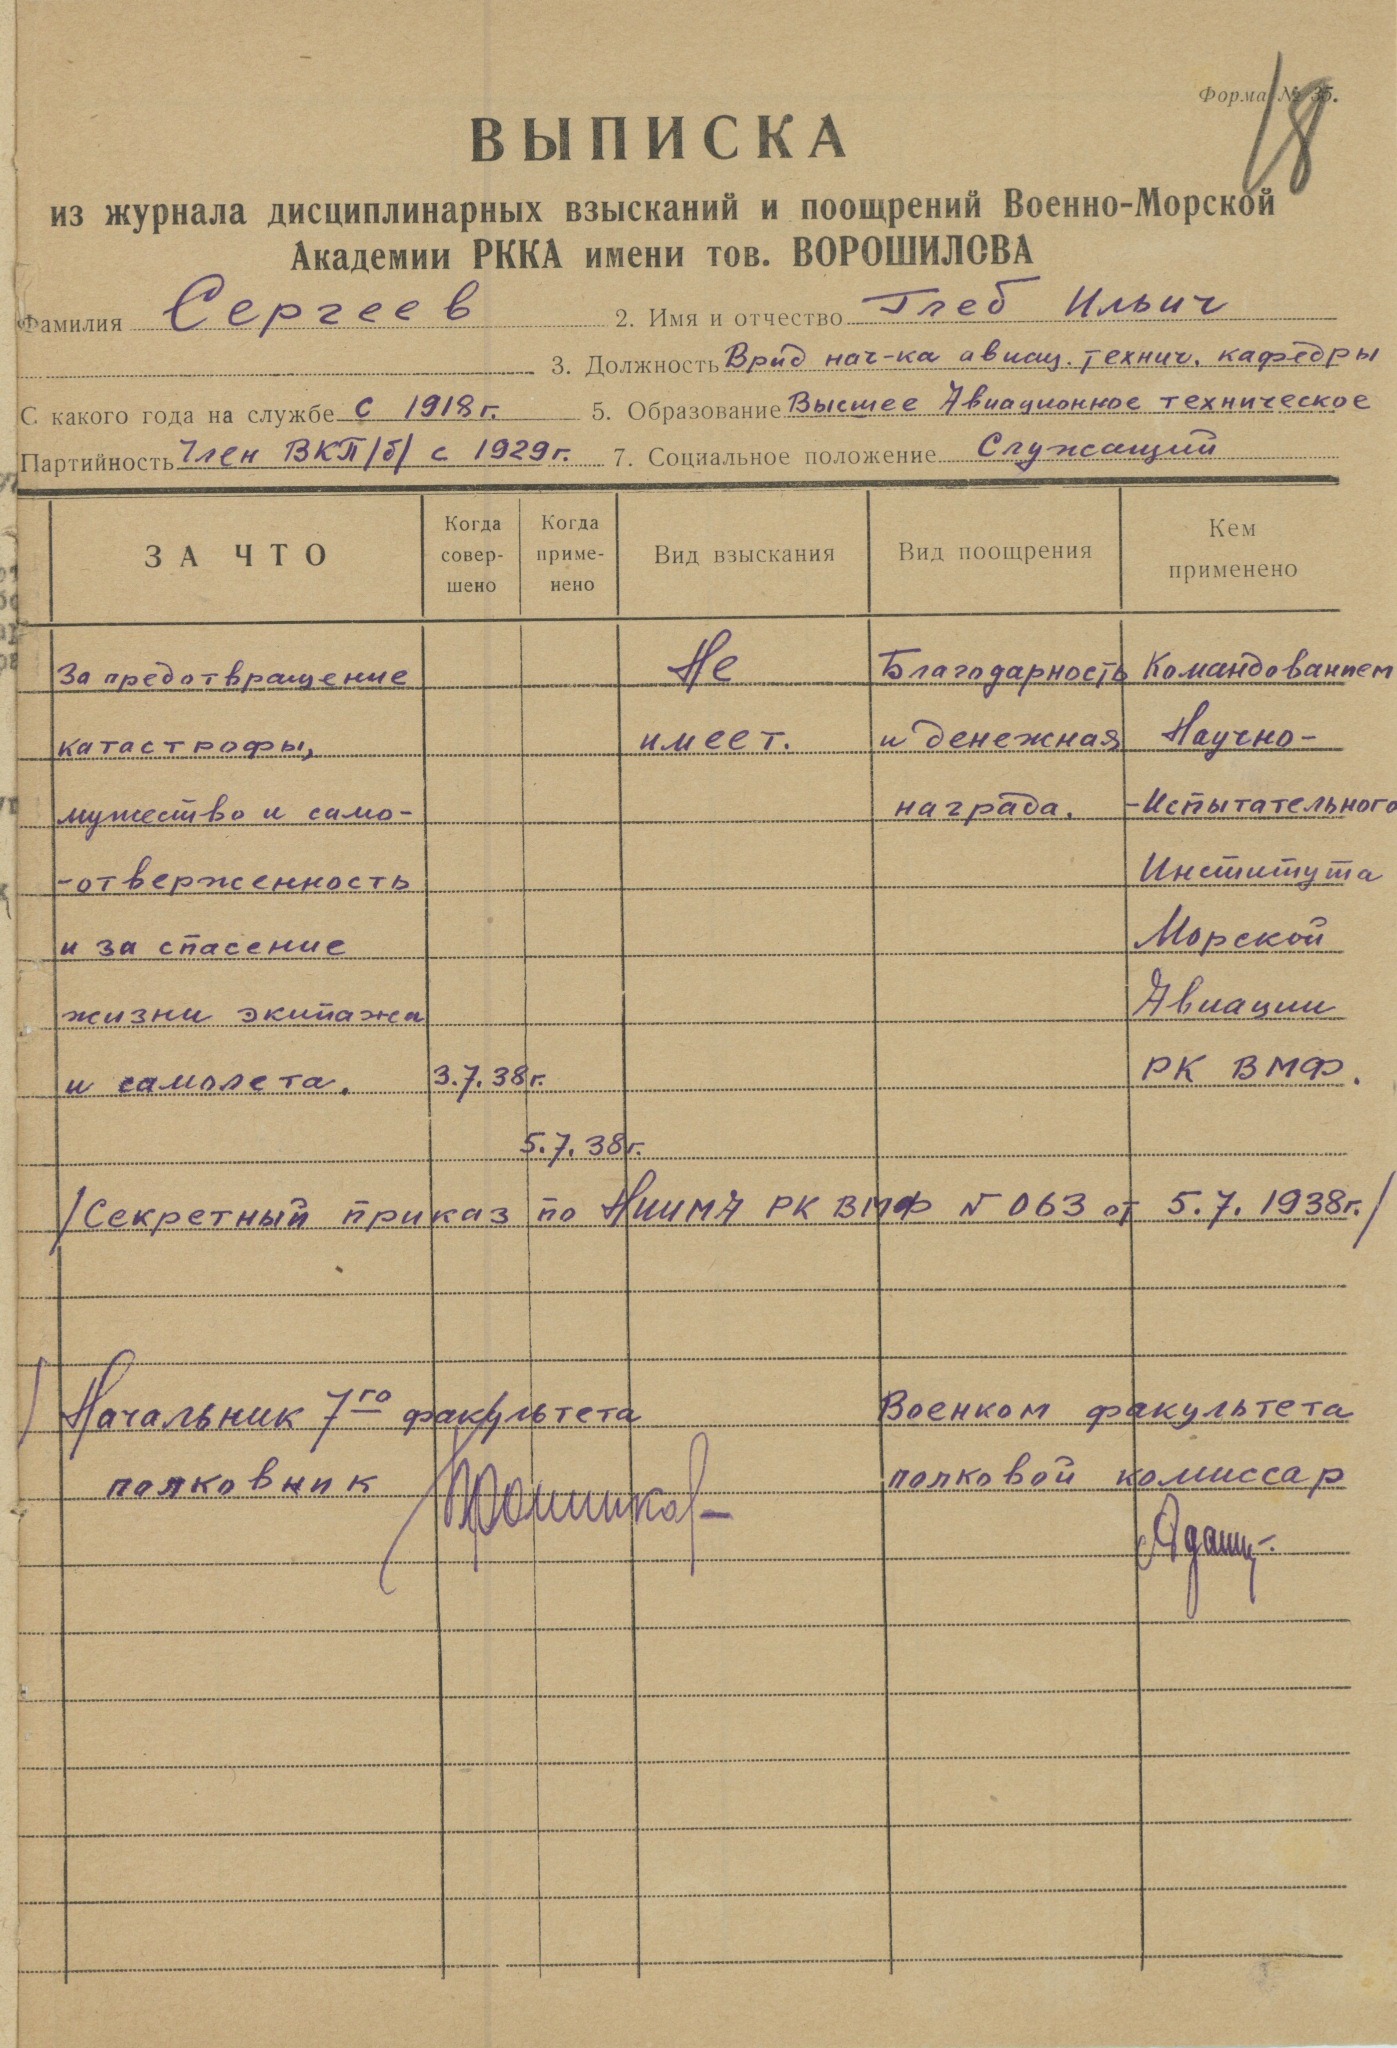 Форма № 35.
18
ВЫПИСКА
из журнала дисциплинарных взысканий и поощрений Военно-Морской
Академии РККА имени тов. ВОРОШИЛОВА
Фамилия Сергеев 2. Имя и отчество Глеб Ильич
3. Должность Врид нач-ка авиац. технич. кафедры
С какого года на службе с 1918 г. 5. Образование Высшее Авиационное техническое
Партийность Член ВКП/б/ с 1929 г. 7. Социальное положение Служащий
ЗА ЧТО
Когда
совер-
шено
Когда
приме-
нено
Вид взыскания
Вид поощрения
Кем
применено
За предотвращение Не Благодарность Командованием
катастрофы, имеет. и денежная Научно-
мужество и само- награда. -Испытательного
-отверженность Института
и за спасение Морской
жизни экипажа Авиации
и самолета. 3.7.38 г. РК ВМФ.
5.7.38 г.
/Секретный приказ по НИИМА РК ВМФ № 063 от 5.7.1938 г./
Начальник 7го факультета Военком факультета
полковник полковой комиссар